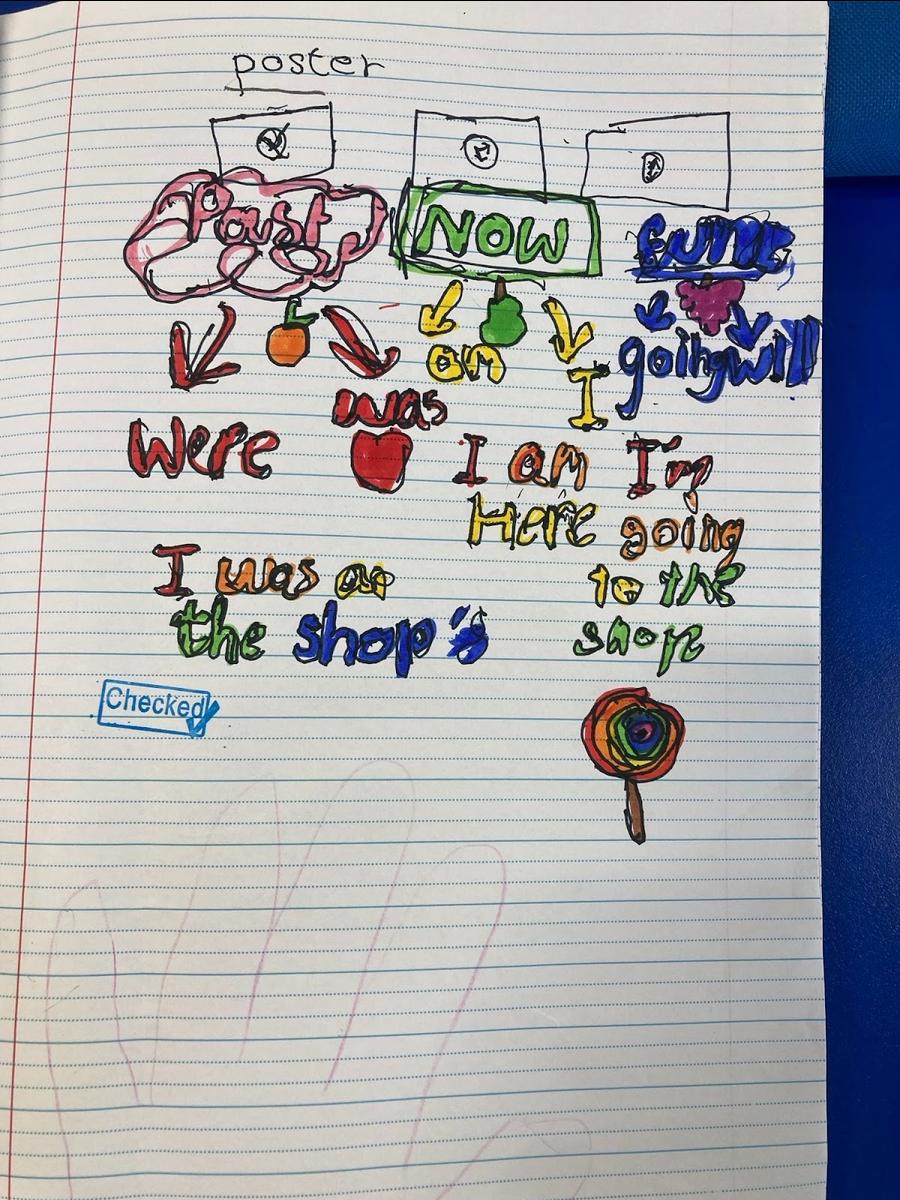 poster
Past
NOW
am
I
going will
was
Were
I am
Here
I'm
going
to the
shop
I was
the shop's
Checked